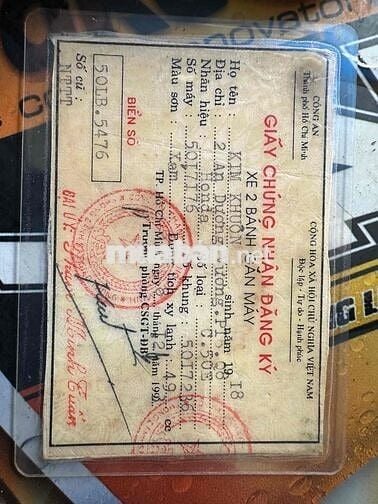 CÔNG AN
Thành phố Hồ Chí Minh
CỘNG HÒA XÃ HỘI CHỦ NGHĨA VIỆT NAM
Độc lập - Tự do - Hạnh phúc
GIẤY CHỨNG NHẬN ĐĂNG KÝ
XE 2 BÁNH GẮN MÁY
Họ tên : KIM KHUÔN sinh năm 19 18
Địa chỉ : 2 An Dương Vương.P
Nhãn hiệu : Honda Số loại : C.50
Số máy : 5017176 Số khung : 50172
Màu sơn : Xám Dung tích xy lanh : 49 cc
TP. Hồ Chí Minh, ngày tháng 2 năm 199
Trưởng phòng CSGT-ĐB
BIỂN SỐ
50LB.5476
Số cũ :
NTTT
ĐẠI ÚY
muaban.net
novator